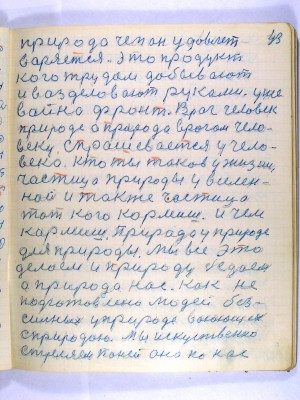 43
природа чем он удовлет-
варяется. Это продукт
кого трудом добывают
и вазделовают руками. уже
вайна фронт. Враг человек
природе а природа врагом чело-
веку. Страшевается у чело-
века. Кто ты таков у жизни,
частица природы у вилен-
ной и также частица
тот кого кармиш. и чем
кармиш. Прираду у природе
для природы. Мы все это
делаем и природу едаем
а природа нас. Как не
подготовлено людей без-
сильных у природе воюющих
сприродою. Мы искуственно
стреляем по ней она по нас